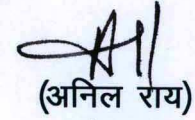 (अनिल राय)